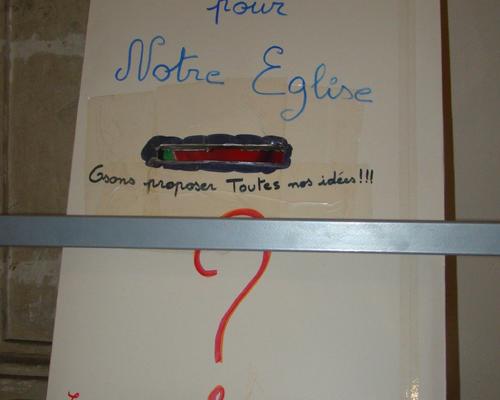 pour
Notre Eglise
Osons proposer Toutes nos idées!!!
?